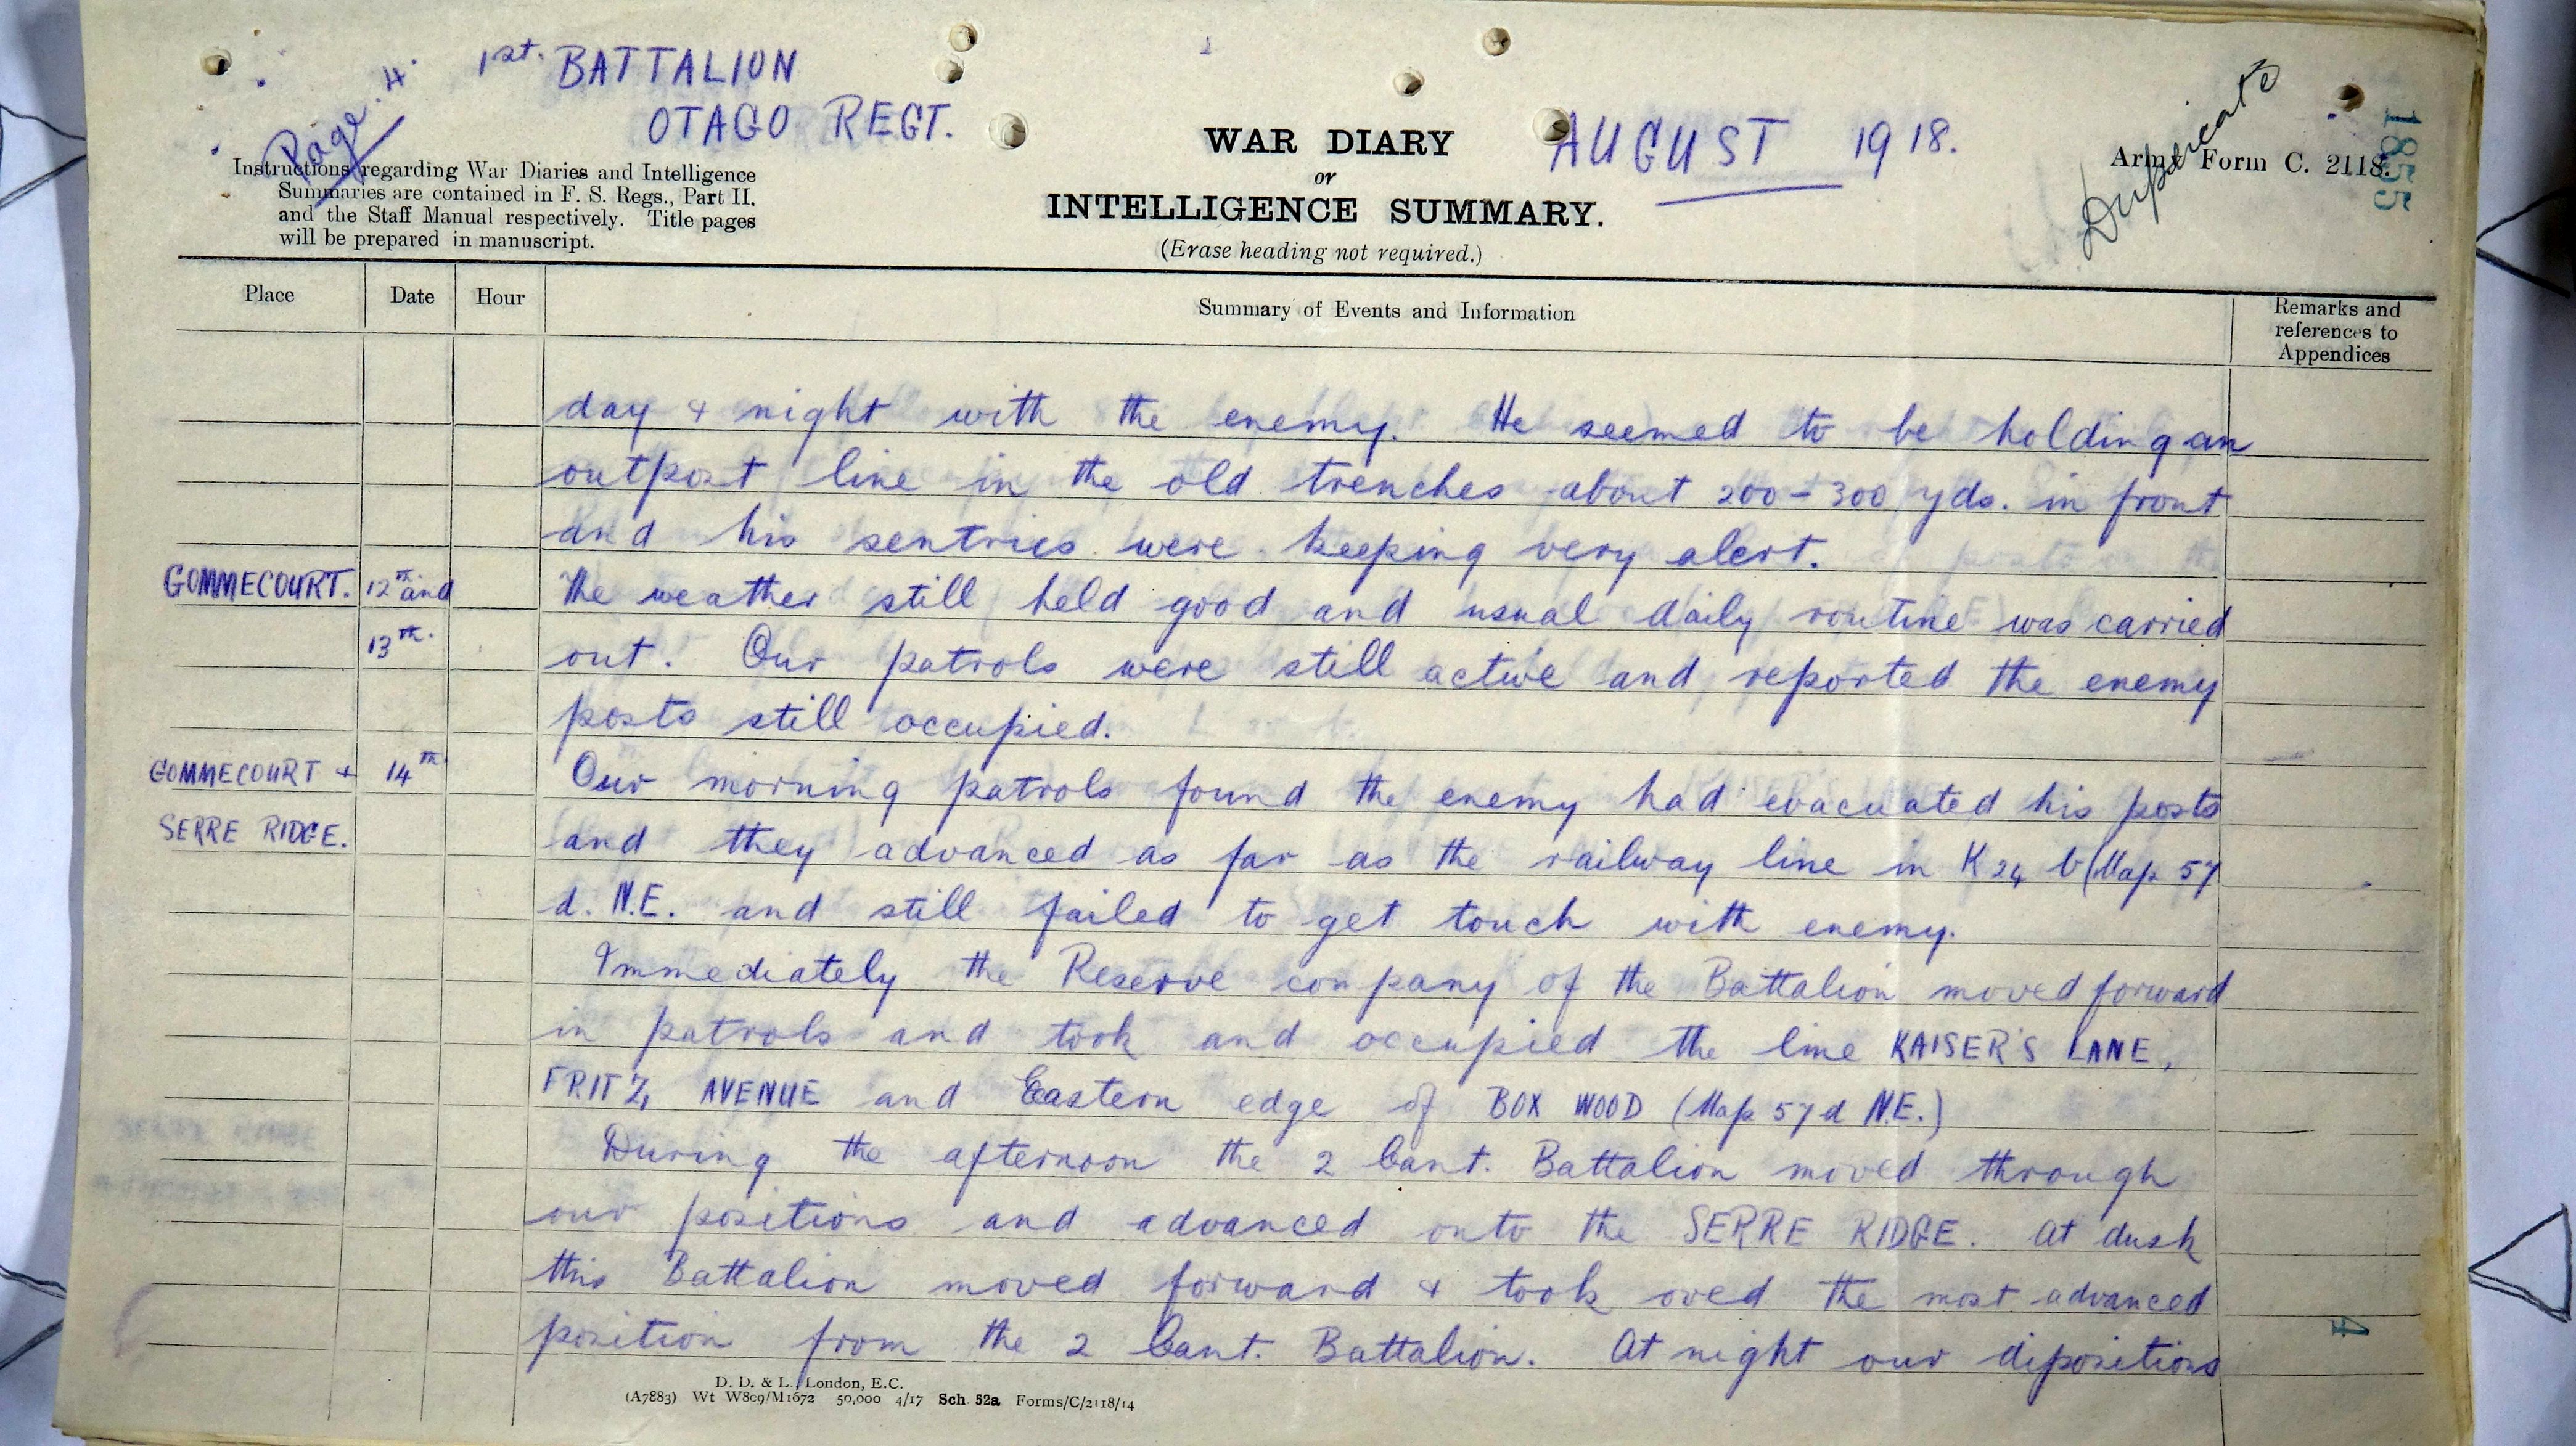 Page 4.
1st. BATTALION
OTAGO REGT.
AUGUST 1918.
Duplicate
1855
Instructions regarding War Diaries and Intelligence
Summaries are contained in F. S. Regs., Part II.
and the Staff Manual respectively. Title pages
will be prepared in manuscript.
WAR DIARY
or
INTELLIGENCE SUMMARY.
(Erase heading not required.)
Army Form C. 2118.
Place Date Hour Summary of Events and Information Remarks and
references to
Appendices
day & night with the enemy. He seemed to be holding an
outpost line in the old trenches about 200-300 yds. in front
and his sentries were keeping very alert.
GOMMECOURT. 12th and The weather still held good and usual daily routine was carried
13th. out. Our patrols were still active and reported the enemy
posts still occupied.
GOMMECOURT & 14th Our morning patrols found the enemy had evacuated his posts
SERRE RIDGE. and they advanced as far as the railway line in K 24 b (Map 57
d. N.E. and still failed to get touch with enemy.
Immediately the Reserve company of the Battalion moved forward
in patrols and took and occupied the line KAISER'S LANE,
FRITZ AVENUE and Eastern edge of BOX WOOD (Map 57 d N.E.)
During the afternoon the 2 Cant. Battalion moved through
our positions and advanced onto the SERRE RIDGE. At dusk
this Battalion moved forward & took oved the most advanced
position from the 2 Cant. Battalion. At night our dipositions
4
D. D. & L., London, E.C.
(A7883) Wt W809/M1672 50,000 4/17 Sch. 52a Forms/C/2118/14